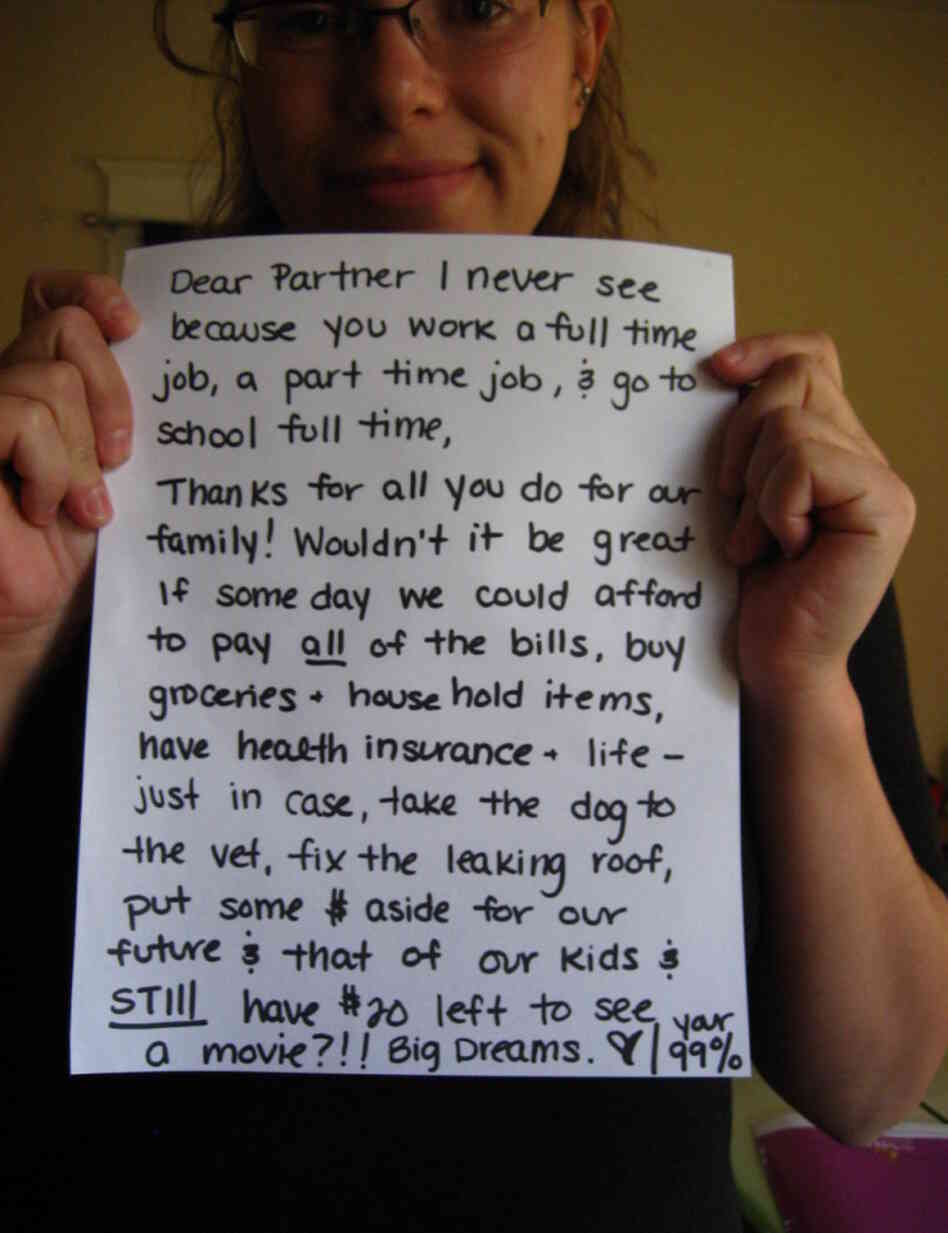 Dear Partner I never see
because you work a full time
job, a part time job, & go to
school full time,
Thanks for all you do for our
family! Wouldn't it be great
If some day we could afford
to pay all of the bills, buy
groceries + house hold items,
have health insurance + life -
just in case, take the dog to
the vet, fix the leaking roof,
put some $ aside for our
future & that of our kids &
STIll have $20 left to see
a movie?!! Big Dreams. ♥ | your 99%